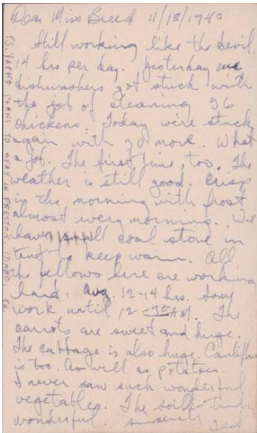 Dear Miss Breed 11/18/1943
Still working like the devil,
14 hrs per day. Yesterday we
dishwashers got stuck with
the job of cleaning 36
chickens. Today we're stuck
again with 20 more. What
a job. The first time, too. The
weather is still good. Crisp
in the morning with frost
almost every morning. We
have small coal stove in
tent to keep warm. All
the fellows here are working
hard, avg. 12-14 hrs. Some
work until 12 AM. The
carrots are sweet and huge.
The cabbage is also huge. Cauliflower
is too. As well as potatoes.
I never saw such wonderful
vegetables. The soil
wonderful. Sincerely Ted